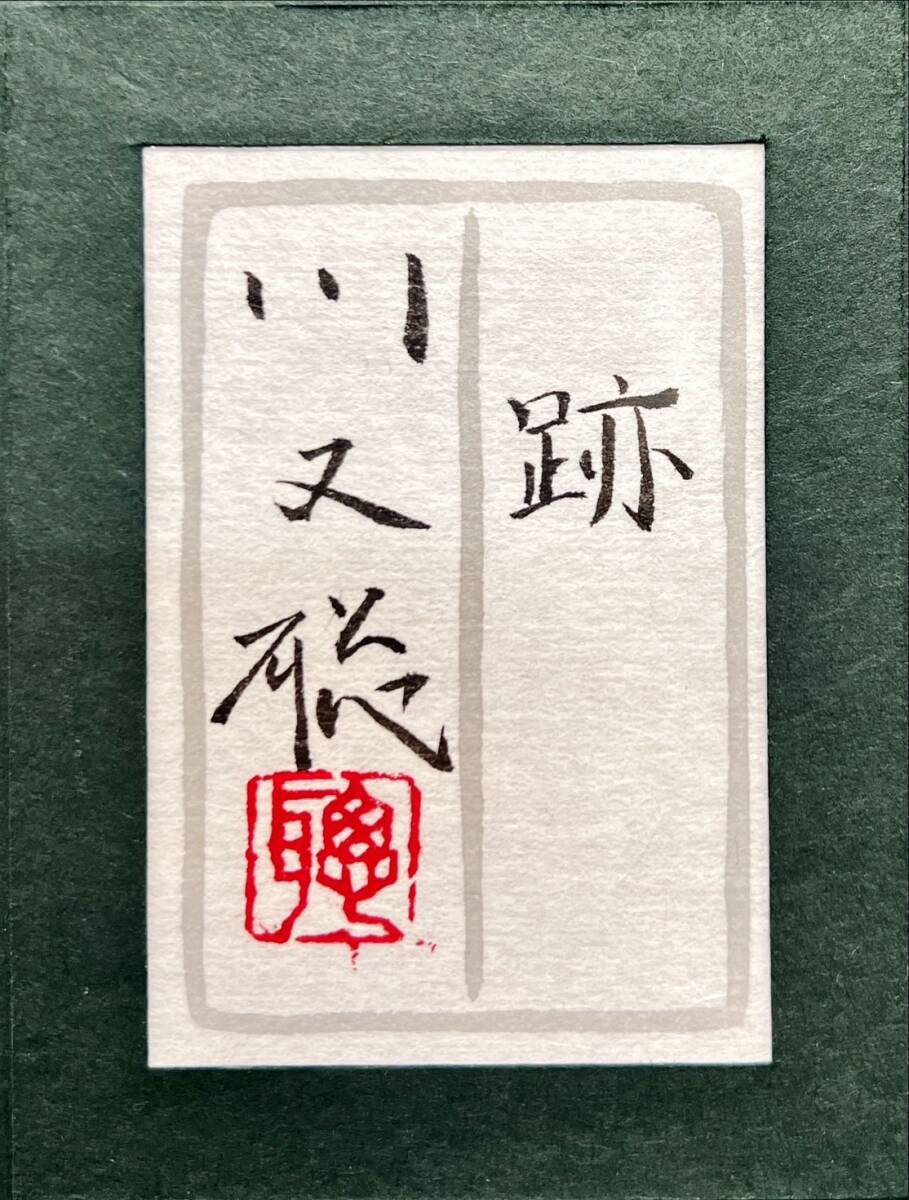 跡
川又聡
聰